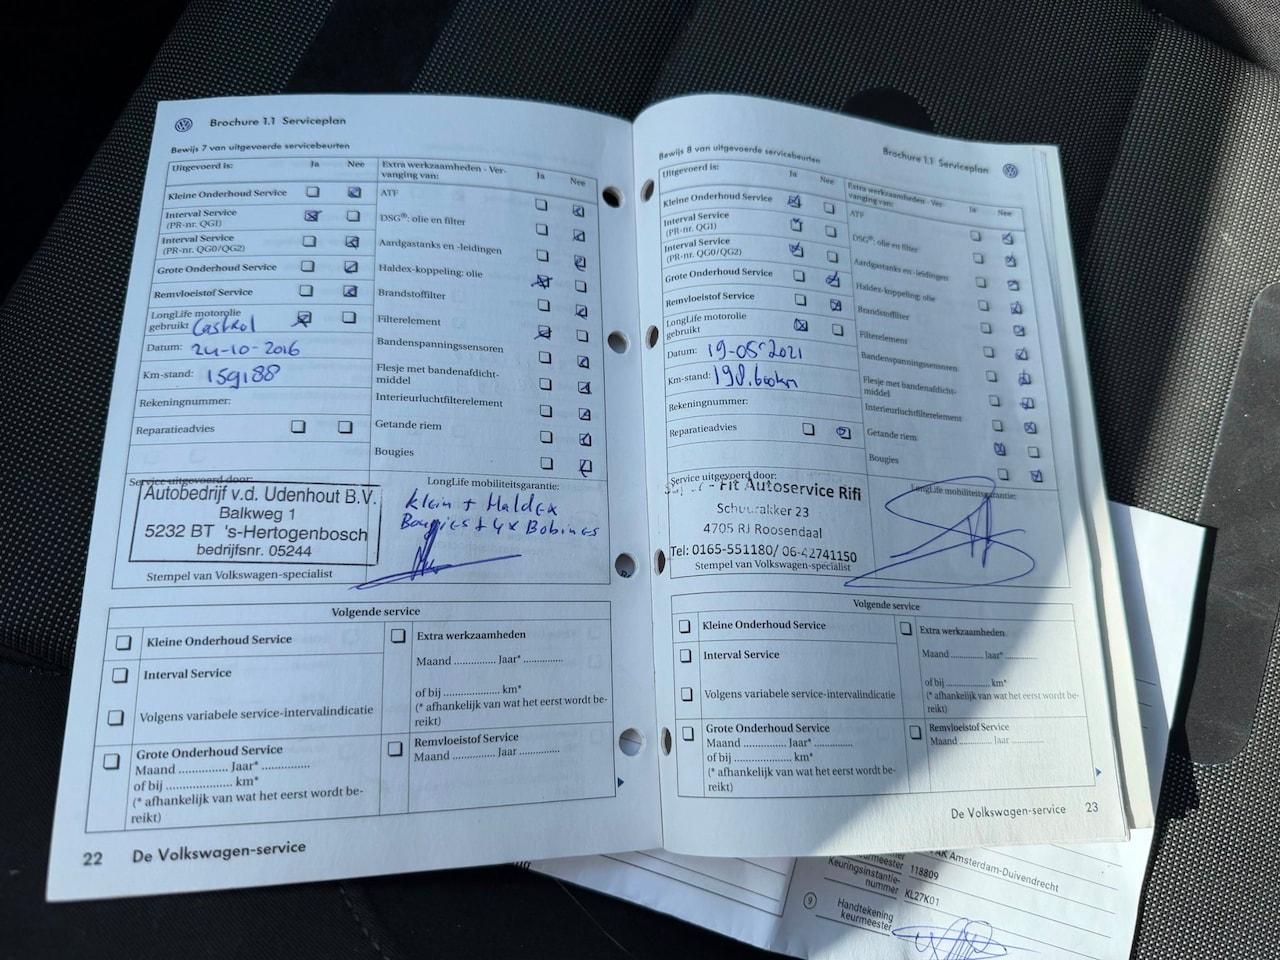 Brochure 1.1 Serviceplan
Bewijs 7 van uitgevoerde servicebeurten
Uitgevoerd is:
Ja
Nee
Kleine Onderhoud Service
Interval Service
(PR-nr. QG1)
Interval Service
(PR-nr. QG0/QG2)
Grote Onderhoud Service
Remvloeistof Service
LongLife motorolie
gebruikt Castrol
Datum: 24-10-2016
Km-stand: 159188
Rekeningnummer:
Reparatieadvies
Extra werkzaamheden - Ver-
vanging van:
Ja
Nee
ATF
DSG®: olie en filter
Aardgastanks en -leidingen
Haldex-koppeling: olie
Brandstoffilter
Filterelement
Bandenspanningssensoren
Flesje met bandenafdicht-
middel
Interieurluchtfilterelement
Getande riem
Bougies
Service uitgevoerd door:
Autobedrijf v.d. Udenhout B.V.
Balkweg 1
5232 BT 's-Hertogenbosch
bedrijfsnr. 05244
Stempel van Volkswagen-specialist
LongLife mobiliteitsgarantie:
Klein + Haldex
Bougies + 4x Bobines
Volgende service
Kleine Onderhoud Service
Interval Service
Volgens variabele service-intervalindicatie
Grote Onderhoud Service
Maand .............. Jaar* ..............
of bij .................... km*
(* afhankelijk van wat het eerst wordt be-
reikt)
Extra werkzaamheden
Maand .............. Jaar* ..............
of bij .................... km*
(* afhankelijk van wat het eerst wordt be-
reikt)
Remvloeistof Service
Maand .............. Jaar ..............
22 De Volkswagen-service
Brochure 1.1 Serviceplan
Bewijs 8 van uitgevoerde servicebeurten
Uitgevoerd is:
Ja
Nee
Kleine Onderhoud Service
Interval Service
(PR-nr. QG1)
Interval Service
(PR-nr. QG0/QG2)
Grote Onderhoud Service
Remvloeistof Service
LongLife motorolie
gebruikt
Datum: 19-05-2021
Km-stand: 198.600km
Rekeningnummer:
Reparatieadvies
Extra werkzaamheden - Ver-
vanging van:
Ja
Nee
ATF
DSG®: olie en filter
Aardgastanks en -leidingen
Haldex-koppeling: olie
Brandstoffilter
Filterelement
Bandenspanningssensoren
Flesje met bandenafdicht-
middel
Interieurluchtfilterelement
Getande riem
Bougies
Service uitgevoerd door:
- Fit Autoservice Rifi
Schuurakker 23
4705 RJ Roosendaal
Tel: 0165-551180/ 06-42741150
Stempel van Volkswagen-specialist
LongLife mobiliteitsgarantie:
Volgende service
Kleine Onderhoud Service
Interval Service
Volgens variabele service-intervalindicatie
Grote Onderhoud Service
Maand .............. Jaar* ..............
of bij .................... km*
(* afhankelijk van wat het eerst wordt be-
reikt)
Extra werkzaamheden
Maand .............. Jaar* ..............
of bij .................... km*
(* afhankelijk van wat het eerst wordt be-
reikt)
Remvloeistof Service
Maand .............. Jaar ..............
De Volkswagen-service 23
Amsterdam-Duivendrecht
keurmeester 118809
Keuringsinstantie-
nummer KL27K01
9 Handtekening
keurmeester